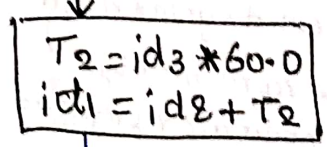 T2 = id3 * 60.0
id1 = id2 + T2